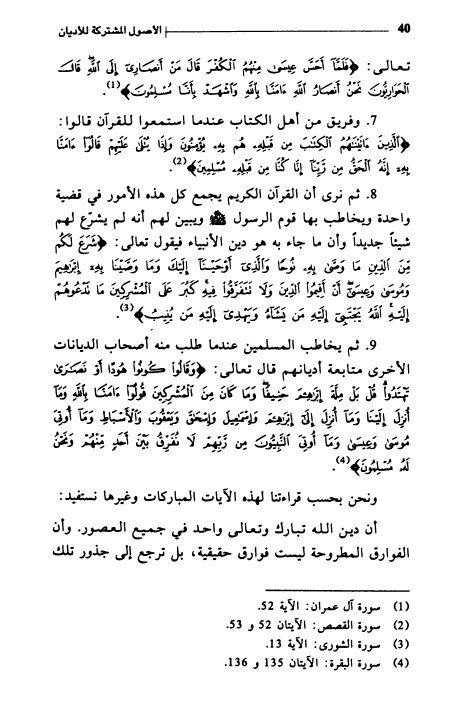 40 الأصول المشتركة للأديان
تعالى: ﴿فَلَمَّآ أَحَسَّ عِيسَىٰ مِنْهُمُ ٱلْكُفْرَ قَالَ مَنْ أَنصَارِىٓ إِلَى ٱللَّهِ قَالَ
ٱلْحَوَارِيُّونَ نَحْنُ أَنصَارُ ٱللَّهِ ءَامَنَّا بِٱللَّهِ وَٱشْهَدْ بِأَنَّا مُسْلِمُونَ﴾(1).
7. وفريق من أهل الكتاب عندما استمعوا للقرآن قالوا:
﴿ٱلَّذِينَ ءَاتَيْنَٰهُمُ ٱلْكِتَٰبَ مِن قَبْلِهِۦ هُم بِهِۦ يُؤْمِنُونَ وَإِذَا يُتْلَىٰ عَلَيْهِمْ قَالُوٓا۟ ءَامَنَّا
بِهِۦٓ إِنَّهُ ٱلْحَقُّ مِن رَّبِّنَآ إِنَّا كُنَّا مِن قَبْلِهِۦ مُسْلِمِينَ﴾(2).
8. ثم نرى أن القرآن الكريم يجمع كل هذه الأمور في قضية
واحدة ويخاطب بها قوم الرسول ﷺ ويبين لهم أنه لم يشرّع لهم
شيئاً جديداً وأن ما جاء به هو دين الأنبياء فيقول تعالى: ﴿شَرَعَ لَكُم
مِّنَ ٱلدِّينِ مَا وَصَّىٰ بِهِۦ نُوحًا وَٱلَّذِىٓ أَوْحَيْنَآ إِلَيْكَ وَمَا وَصَّيْنَا بِهِۦٓ إِبْرَٰهِيمَ
وَمُوسَىٰ وَعِيسَىٰٓ أَنْ أَقِيمُوا۟ ٱلدِّينَ وَلَا تَتَفَرَّقُوا۟ فِيهِ كَبُرَ عَلَى ٱلْمُشْرِكِينَ مَا تَدْعُوهُمْ
إِلَيْهِ ٱللَّهُ يَجْتَبِىٓ إِلَيْهِ مَن يَشَآءُ وَيَهْدِىٓ إِلَيْهِ مَن يُنِيبُ﴾(3).
9. ثم يخاطب المسلمين عندما طلب منه أصحاب الديانات
الأخرى متابعة أديانهم قال تعالى: ﴿وَقَالُوا۟ كُونُوا۟ هُودًا أَوْ نَصَٰرَىٰ
تَهْتَدُوا۟ قُلْ بَلْ مِلَّةَ إِبْرَٰهِۦمَ حَنِيفًا وَمَا كَانَ مِنَ ٱلْمُشْرِكِينَ قُولُوٓا۟ ءَامَنَّا بِٱللَّهِ وَمَآ
أُنزِلَ إِلَيْنَا وَمَآ أُنزِلَ إِلَىٰٓ إِبْرَٰهِۦمَ وَإِسْمَٰعِيلَ وَإِسْحَٰقَ وَيَعْقُوبَ وَٱلْأَسْبَاطِ وَمَآ أُوتِىَ
مُوسَىٰ وَعِيسَىٰ وَمَآ أُوتِىَ ٱلنَّبِيُّونَ مِن رَّبِّهِمْ لَا نُفَرِّقُ بَيْنَ أَحَدٍ مِّنْهُمْ وَنَحْنُ
لَهُۥ مُسْلِمُونَ﴾(4).
ونحن بحسب قراءتنا لهذه الآيات المباركات وغيرها نستفيد:
أن دين الله تبارك وتعالى واحد في جميع العصور. وأن
الفوارق المطروحة ليست فوارق حقيقية، بل ترجع إلى جذور تلك
(1) سورة آل عمران: الآية 52.
(2) سورة القصص: الآيتان 52 و 53.
(3) سورة الشورى: الآية 13.
(4) سورة البقرة: الآيتان 135 و 136.